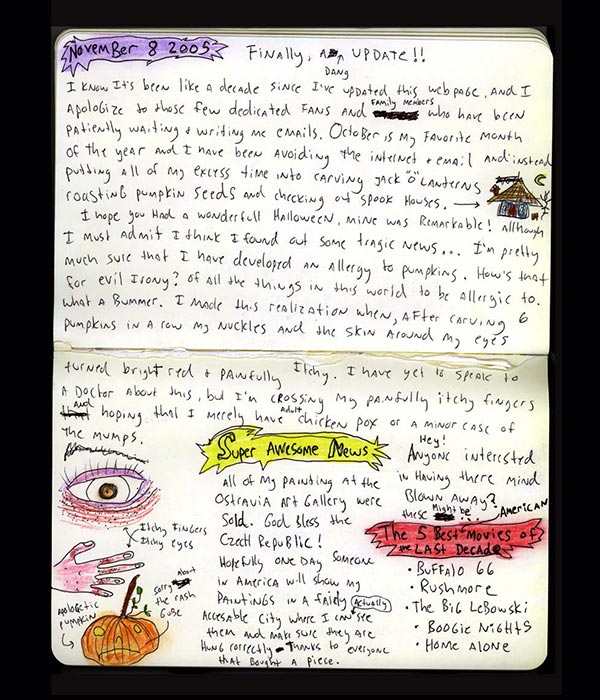 November 8 2005
Finally, A UPDATE!!
Dang
I know It's been like a decade since I've updated this webpage. And I
Apologize to those few dedicated Fans and Family members who have been
patiently waiting + writing me emails. October is my favorite month
of the year and I have been avoiding the internet + email and instead
putting all of my excess time into carving jack "O" Lanterns
roasting pumpkin seeds and checking out spook Houses.
I hope you Had a wonderfull Halloween, mine was Remarkable! although
I must Admit I think I found out some tragic news... I'm pretty
much sure that I have developed an Allergy to pumpkins. How's that
for evil Irony? of all the things in this world to be Allergic to.
what a Bummer. I made this realization when, After carving 6
pumpkins in a row my Nuckles and the skin Around my eyes
turned bright red + painfully Itchy. I have yet to speak to
a Doctor about this, but I'm crossing my painfully itchy fingers
and hoping that I merely have adult chicken pox or a minor case of
the mumps.
Itchy fingers
Itchy eyes
apologetic
pumpkin
sorry About
the rash
Gabe
Super Awesome News
all of my painting at the
Ostravia Art Gallery were
Sold. God Bless the
Czech Republic!
Hopefully one Day someone
in America will show my
Paintings in a fairly
Accesable City where I can Actually see
them and make sure they are
Hung correctly - Thanks to everyone
that Bought a piece.
Hey!
Anyone interested
in Having there mind
Blown Away?
these Might be...
AMERICAN
The 5 Best Movies of
the Last Decade
• Buffalo 66
• Rushmore
• The Big Lebowski
• Boogie Nights
• Home Alone